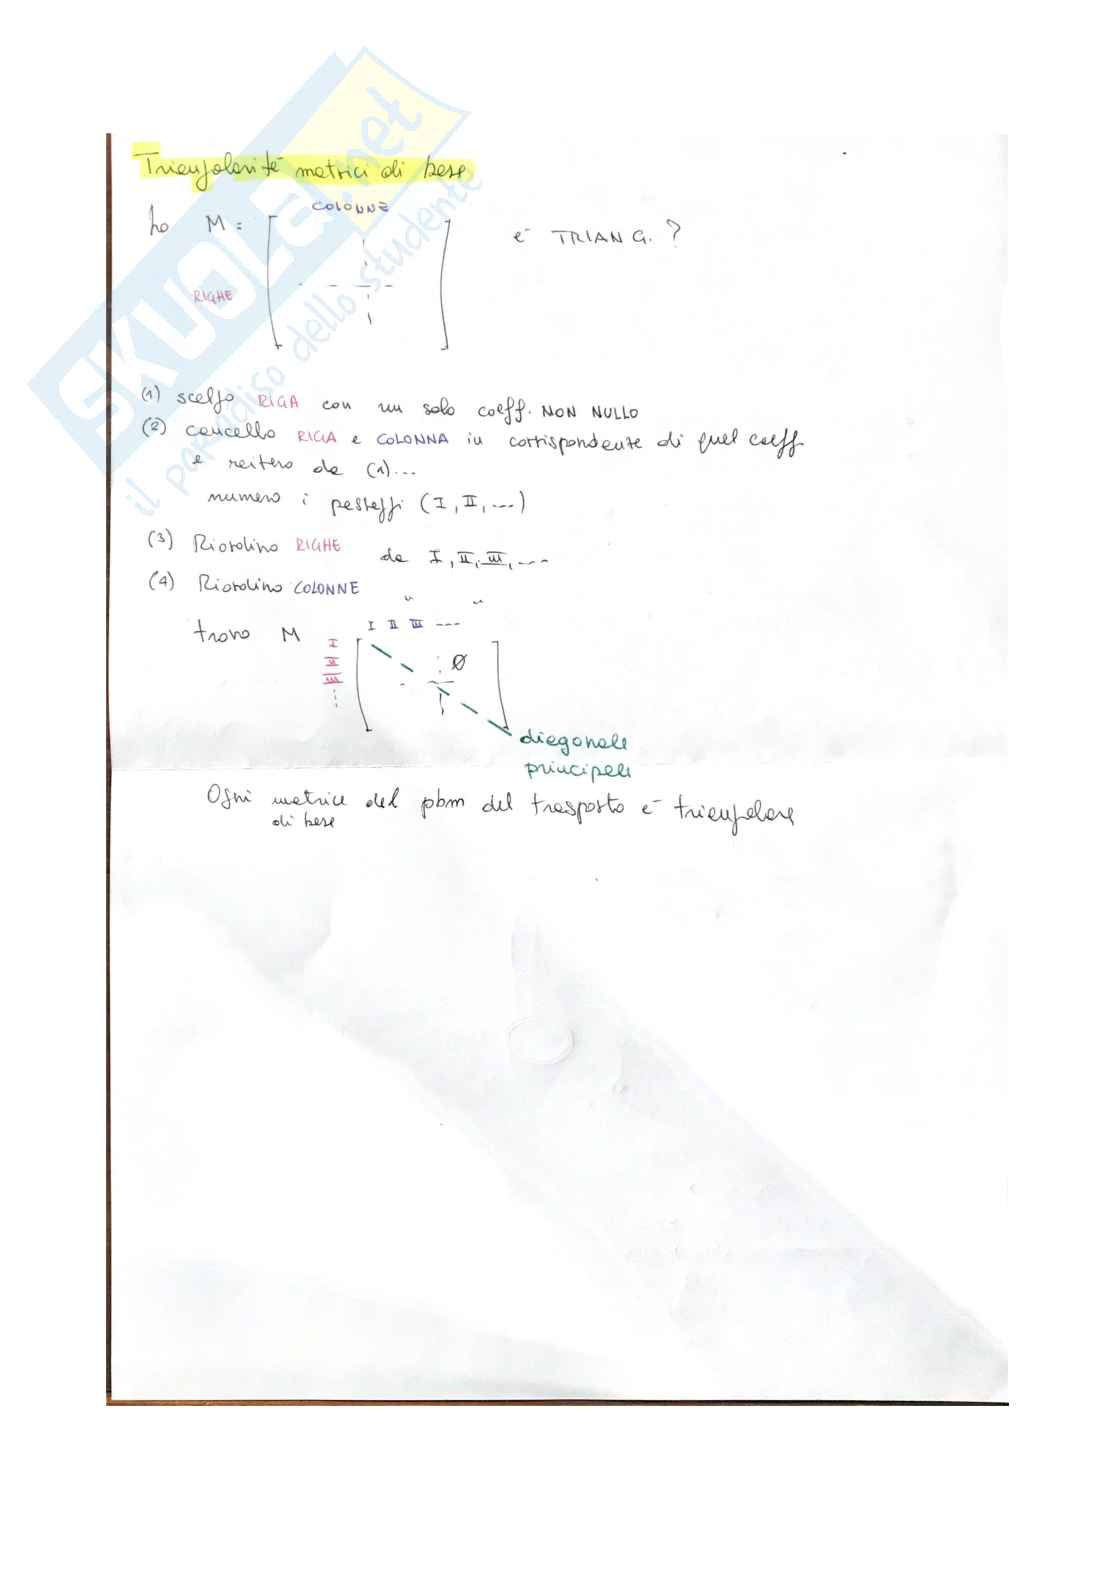 Triangolarità matrici di base
COLONNE
ho M = è TRIANG. ?
RIGHE
(1) scelgo RIGA con un solo coeff. NON NULLO
(2) cancello RIGA e COLONNA in corrispondente di quel coeff
e reitero da (1)...
numero i passaggi (I, II, ---)
(3) Riordino RIGHE da I, II, III, ---
(4) Riordino COLONNE
I II III ---
trovo M
I
II
III
Ø
diagonale
principale
Ogni matrice del pbm del trasporto è triangolare
di base
SKUOLA.net
il paradiso dello studente